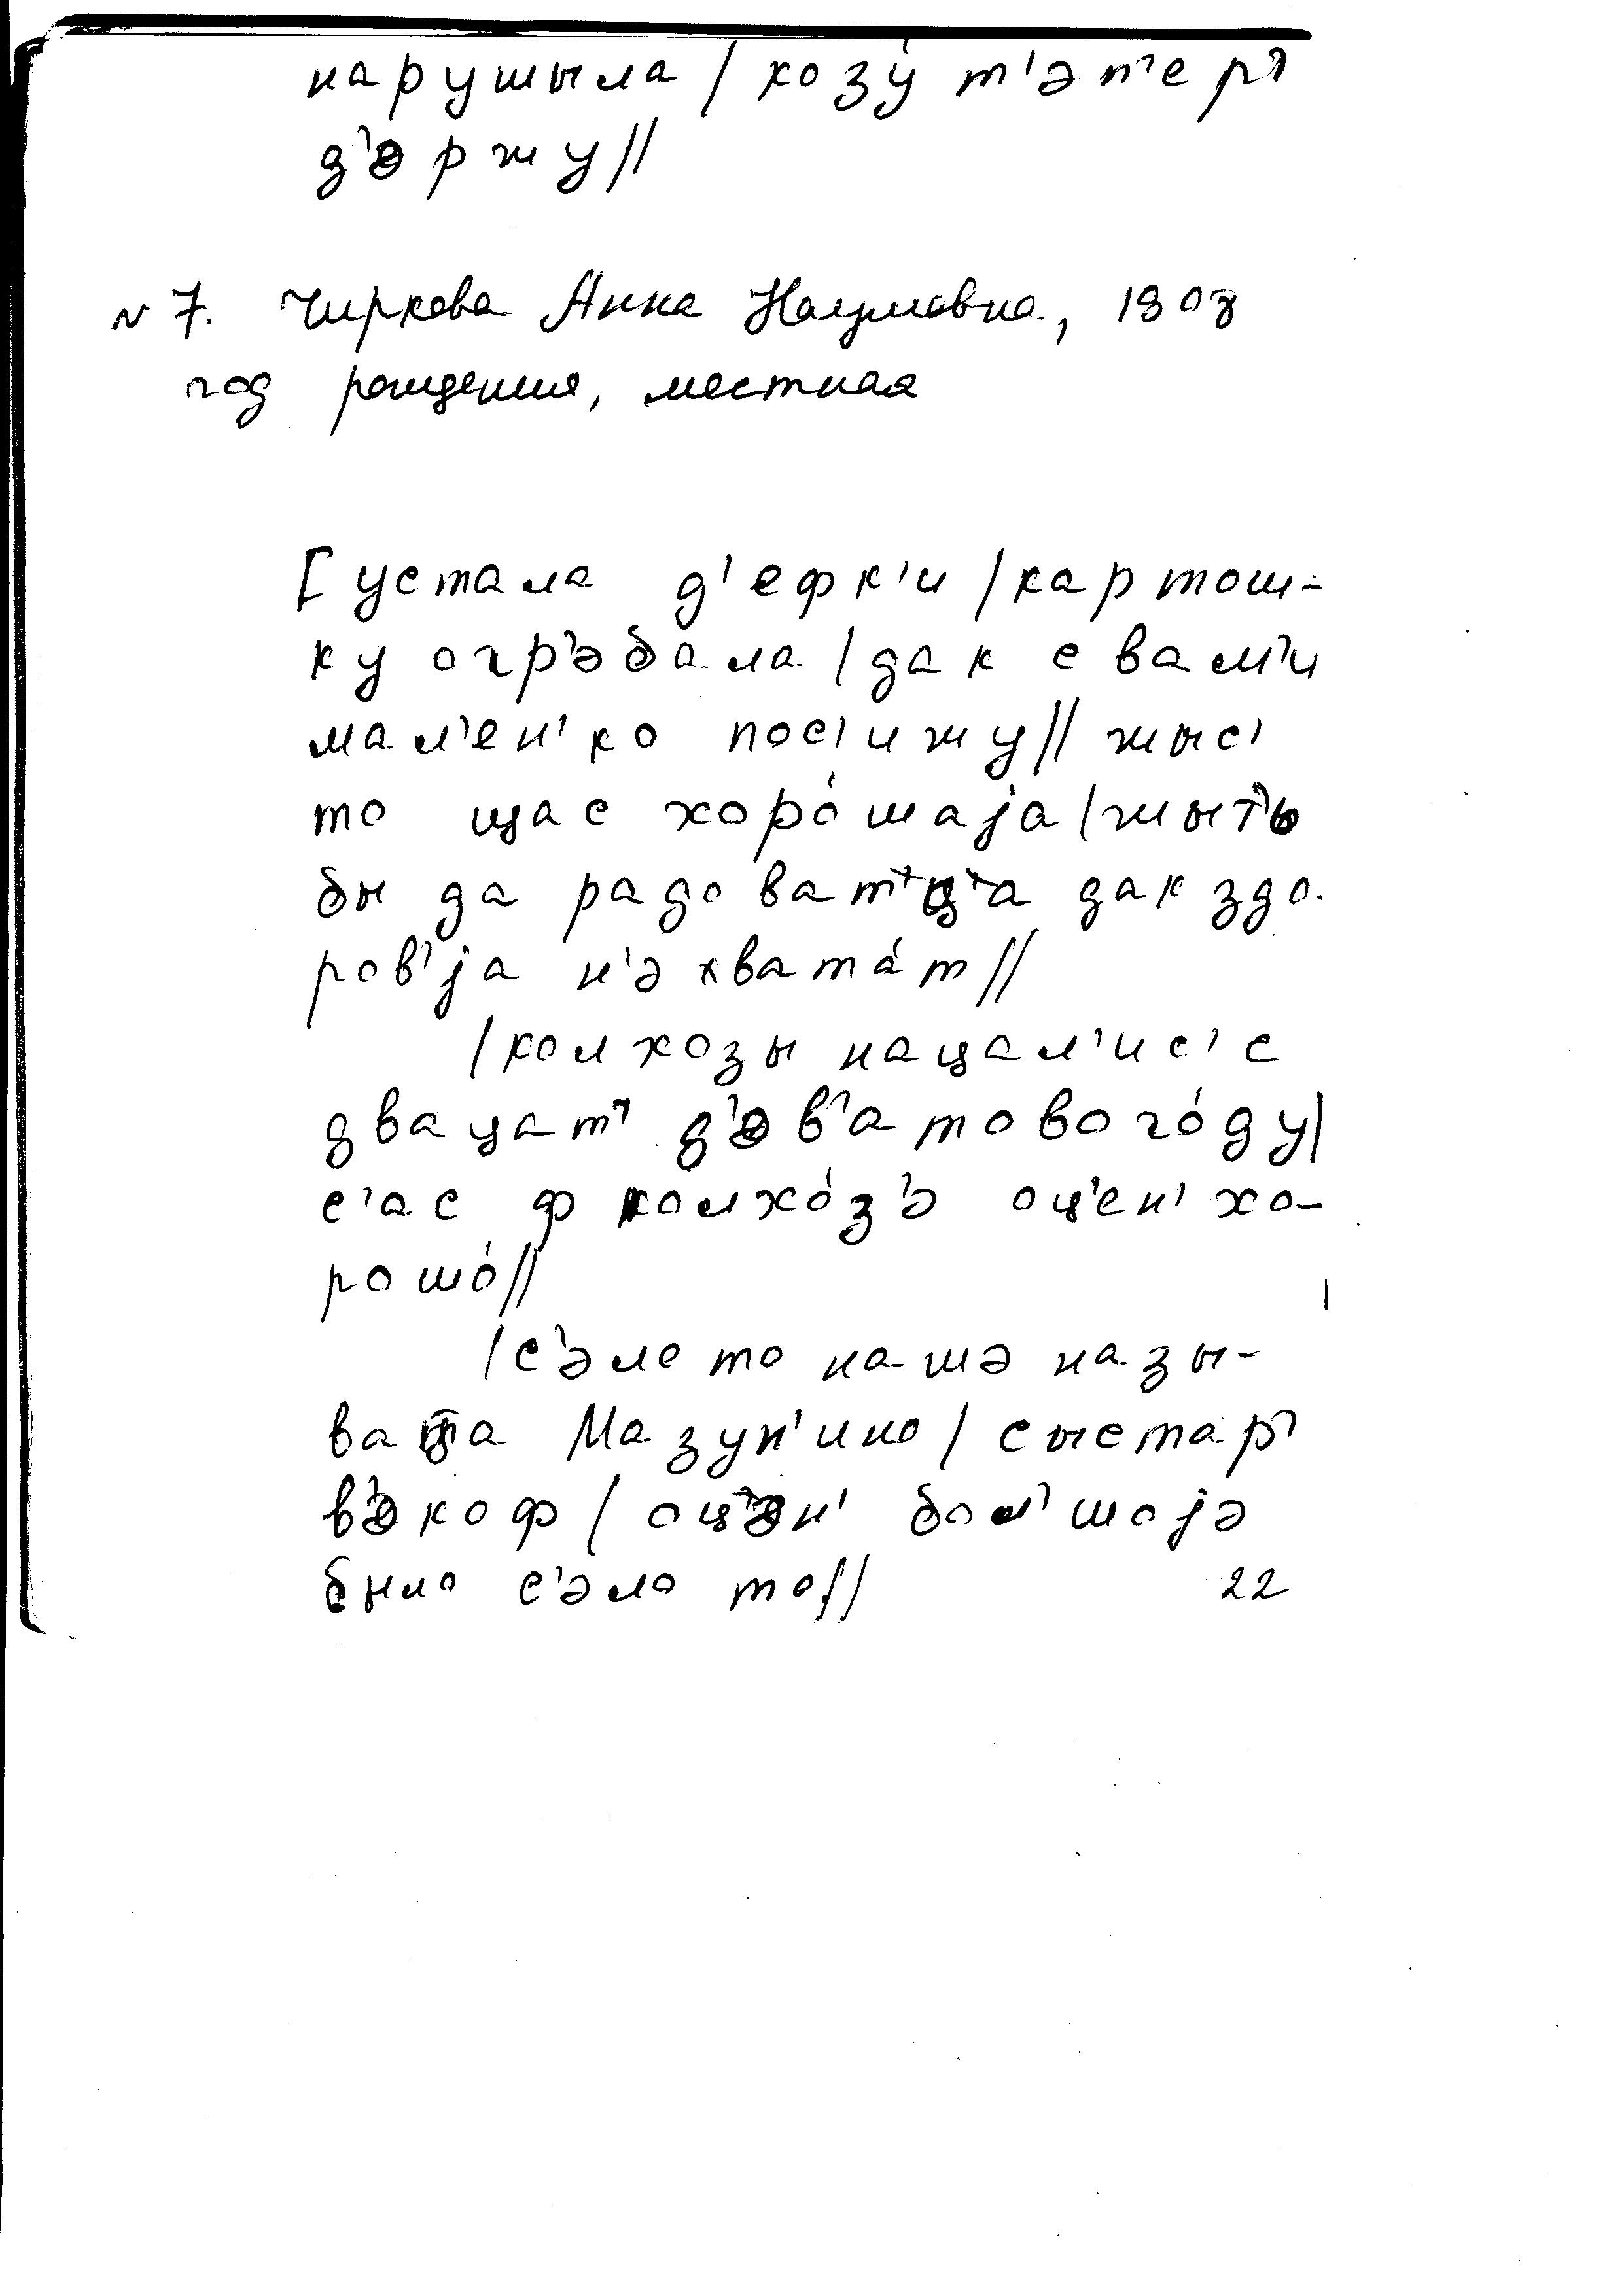 нарушыла / козу́ т'әп'ер'
д'әржу //
N 7. Чиркова Анна Наумовна, 1908
год рождения, местная
[ устала д'ефк'и / картош-
ку огр'әбала / дак с вам'и
мал'ен'ко пос'ижу // жыс'
то щас хоро́шаjа / жыт'
бы да радоват'ц'а дак здо-
ров'jа н'ә хвата́т //
/ колхозы нацал'ис' с
двацат' д'әв'атово го́ду /
с'ас ф колхо́з'ә оц'ен' хо-
рошо́ //
/ с'әло то нашә назы-
ваца Мазун'ино / сыстар'
в'әкоф / оц'ән' бол'шоjә
было с'әло то //
22